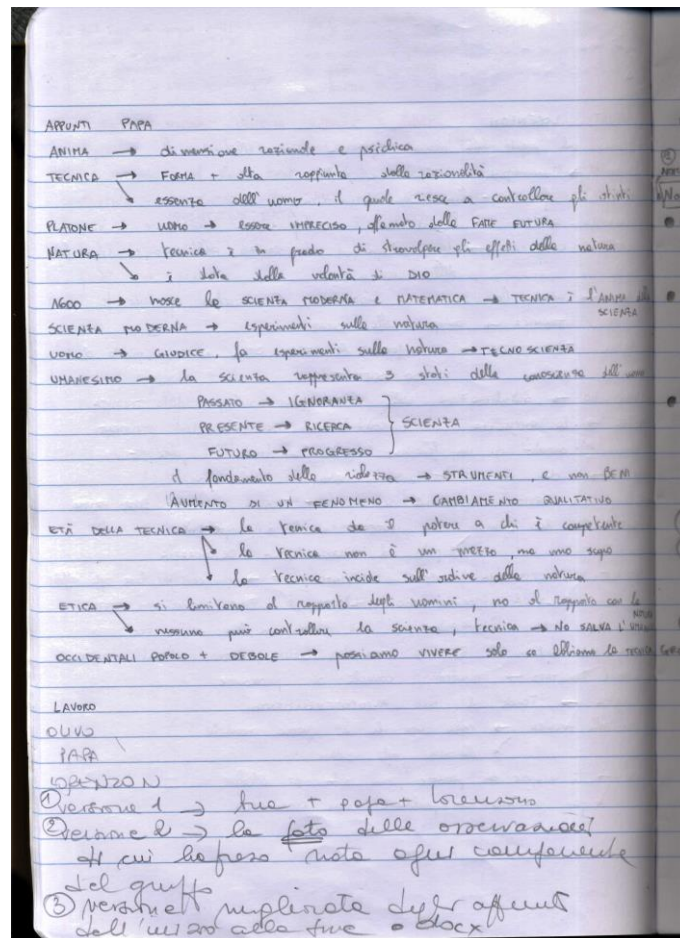 APPUNTI PAPA
ANIMA → dimensione razionale e psichica
TECNICA → FORMA + alta raggiunta dalla razionalità
↘ essenza dell'uomo, il quale riesce a controllare gli istinti
PLATONE → UOMO → essere IMPRECISO, affamato dalla FAME FUTURA
NATURA → tecnica è in grado di stravolgere gli effetti della natura
↘ è data dalla volontà di DIO
1600 → nasce la SCIENZA MODERNA e MATEMATICA → TECNICA è l'ANIMA della SCIENZA
SCIENZA MODERNA → esperimenti sulla natura
UOMO → GIUDICE, fa esperimenti sulla natura → TECNOSCIENZA
UMANESIMO → la scienza rappresenta 3 stati della conoscenza dell'uomo
PASSATO → IGNORANZA
PRESENTE → RICERCA } SCIENZA
FUTURO → PROGRESSO
il fondamento della ricchezza → STRUMENTI, e non BENI
AUMENTO DI UN FENOMENO → CAMBIAMENTO QUALITATIVO
ETÀ DELLA TECNICA → la tecnica da il potere a chi è competente
↘ la tecnica non è un mezzo, ma uno scopo
↘ la tecnica incide sull'ordine della natura
ETICA → si limitano al rapporto degli uomini, no al rapporto con la
↘ nessuno può controllare la scienza, tecnica → NO SALVA L'
OCCIDENTALI POPOLO + DEBOLE → possiamo VIVERE solo se abbiamo la
LAVORO
OLIVO
PAPA
LORENZON
① versione 1 → tua + papa + lorenzon
② versione 2 → la foto delle osservazioni
di cui ha preso nota ogni componente
del gruppo
③ versione migliorata degli appunti
dall'inizio alla fine • docx